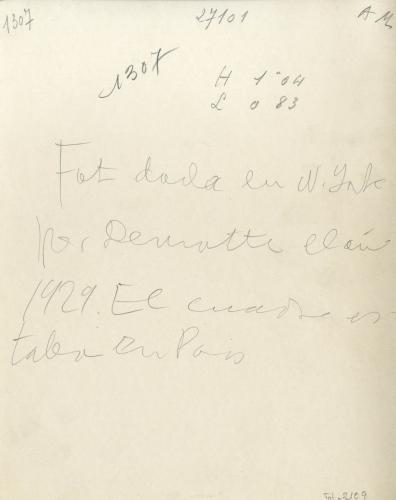 1307
27101
A M
1307
H 1'04
L 0 83
Fot dada en N. York
por Demotte el año
1929. El cuadro es-
taba en Paris